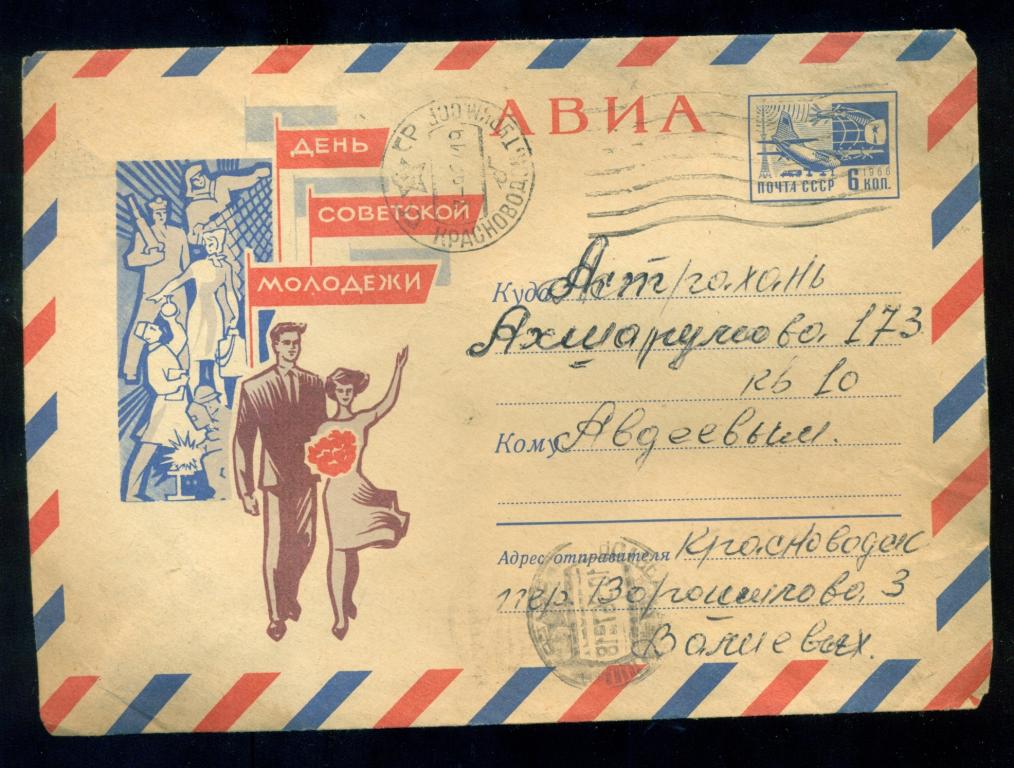 АВИА
ДЕНЬ
СОВЕТСКОЙ
МОЛОДЕЖИ
КРАСНОВОДСК
1966
ПОЧТА СССР 6 КОП.
Куда Астрахань
Ахшарумова 173
кв 10
Кому Авдеевым.
Адрес отправителя Красноводск
пер. Ворошилова, 3
Валиевых.